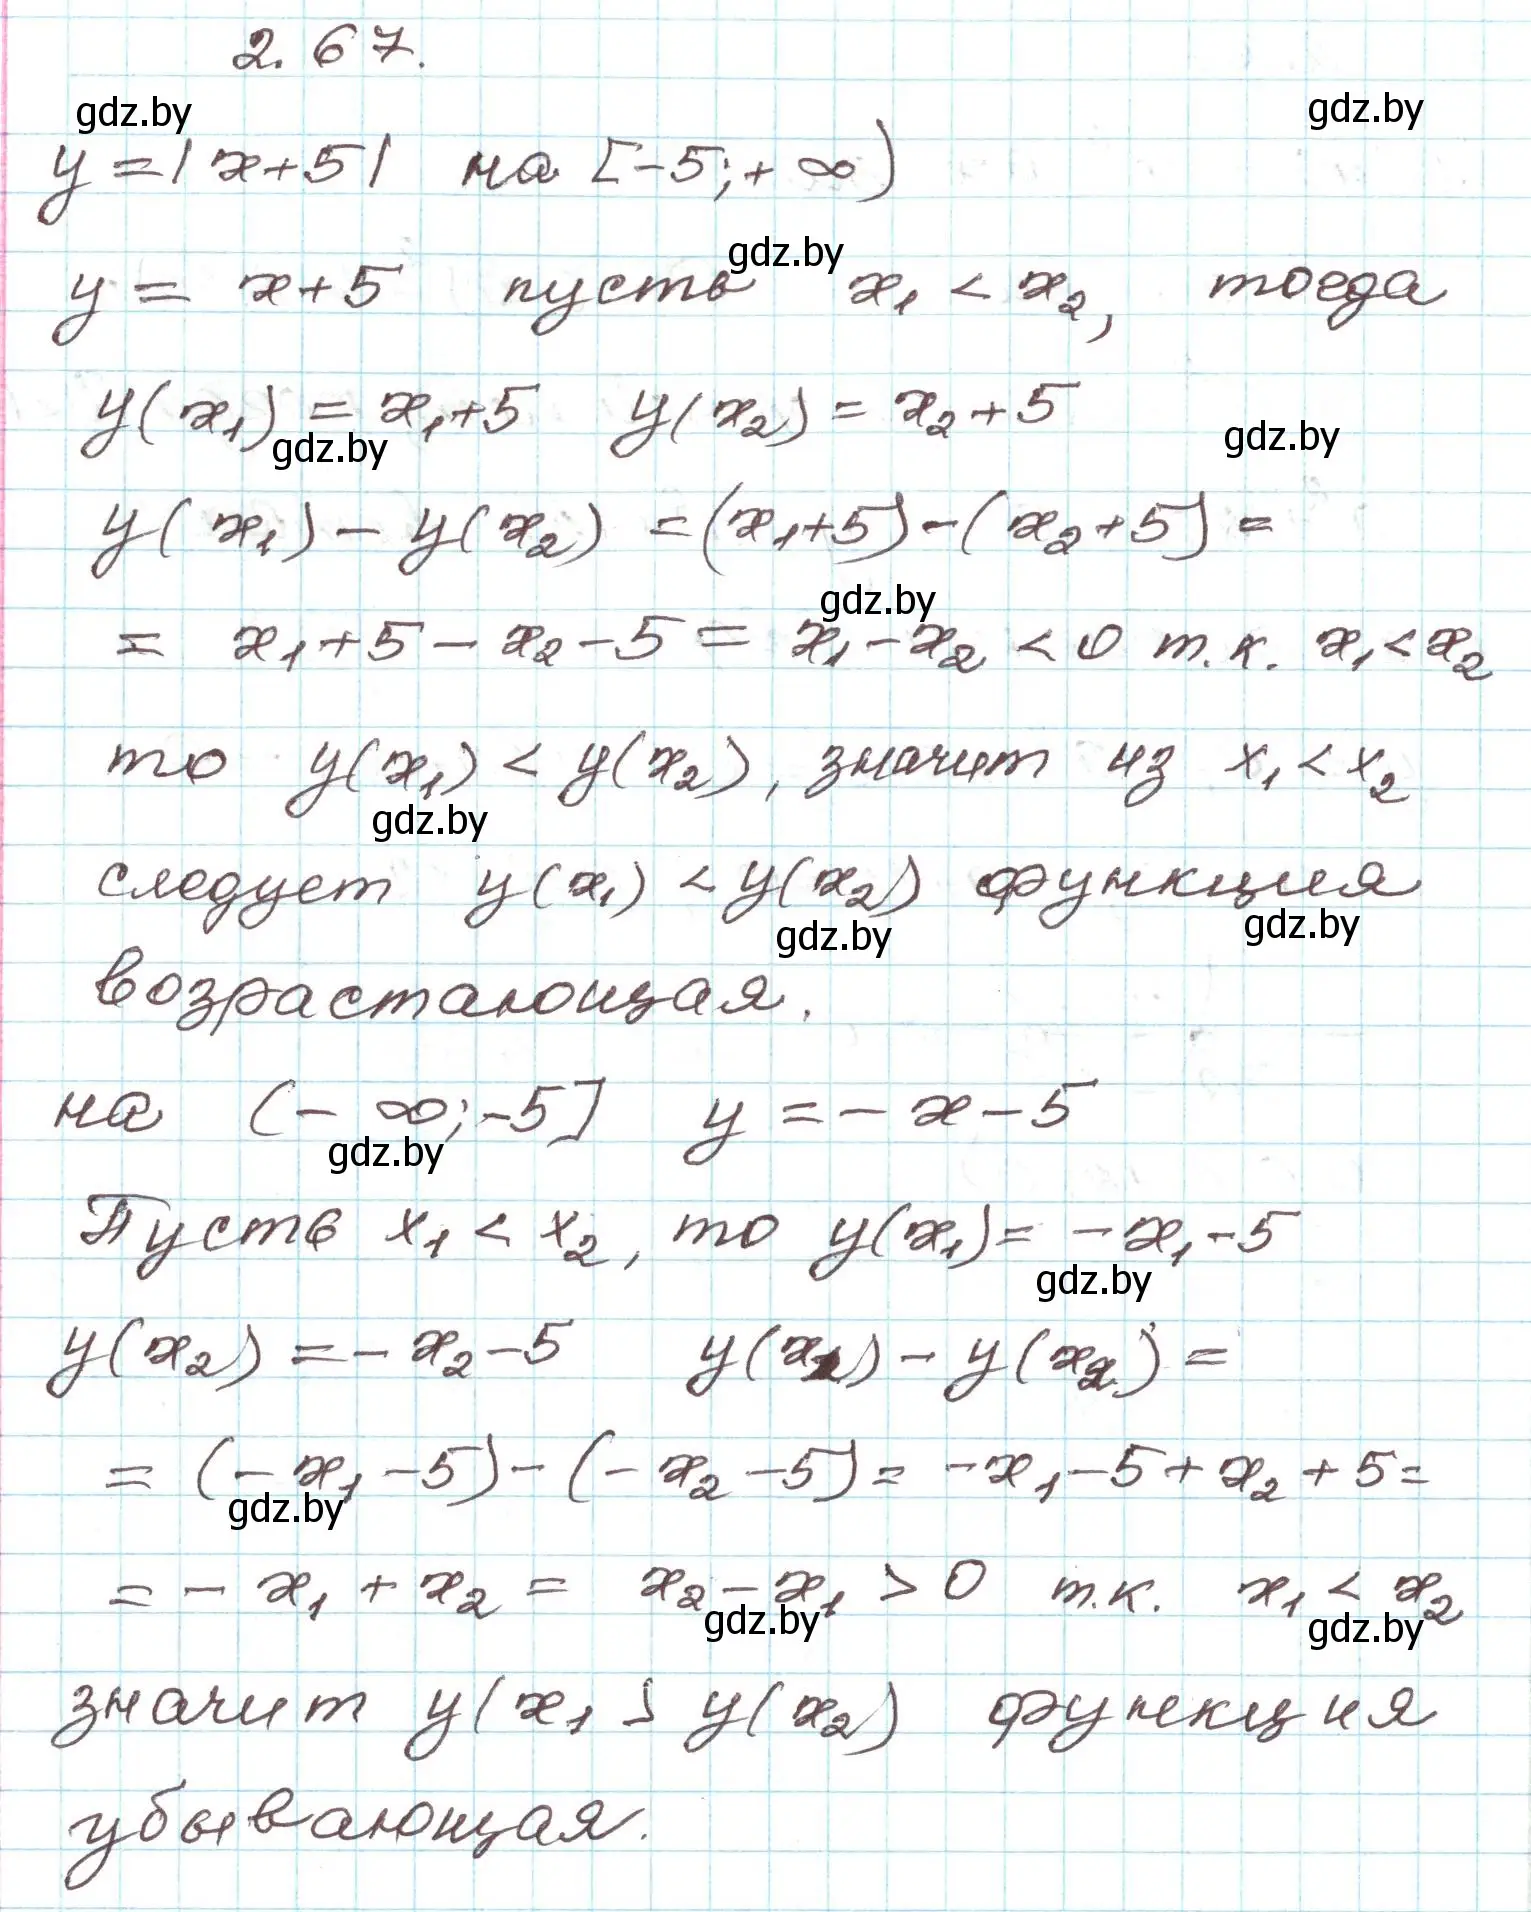 2.67.
gdz.by gdz.by
y = |x+5| на [-5;+∞)
gdz.by
y = x+5 пусть x₁ < x₂, тогда
y(x₁) = x₁+5 y(x₂) = x₂+5
gdz.by gdz.by
y(x₁) - y(x₂) = (x₁+5) - (x₂+5) =
gdz.by
= x₁+5-x₂-5 = x₁-x₂ < 0 т.к. x₁<x₂
то y(x₁) < y(x₂), значит из x₁<x₂
gdz.by
следует y(x₁) < y(x₂) функция
gdz.by gdz.by
возрастающая.
на (-∞;-5] y = -x-5
gdz.by
Пусть x₁ < x₂, то y(x₁) = -x₁-5
gdz.by
y(x₂) = -x₂-5 y(x₁) - y(x₂) =
= (-x₁-5) - (-x₂-5) = -x₁-5+x₂+5 =
gdz.by
= -x₁+x₂ = x₂-x₁ > 0 т.к. x₁ < x₂
gdz.by gdz.by
значит y(x₁ > y(x₂) функция
убывающая.